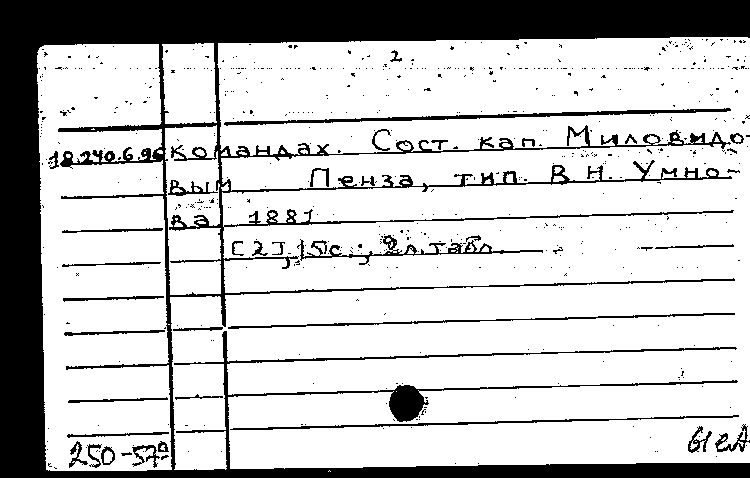 2
18.240.6.96 командах. Сост. кап. Миловидо-
вым Пенза, тип. В. Н. Умно-
ва 1881
[2], 15с.; 2 л. табл.
250-57а